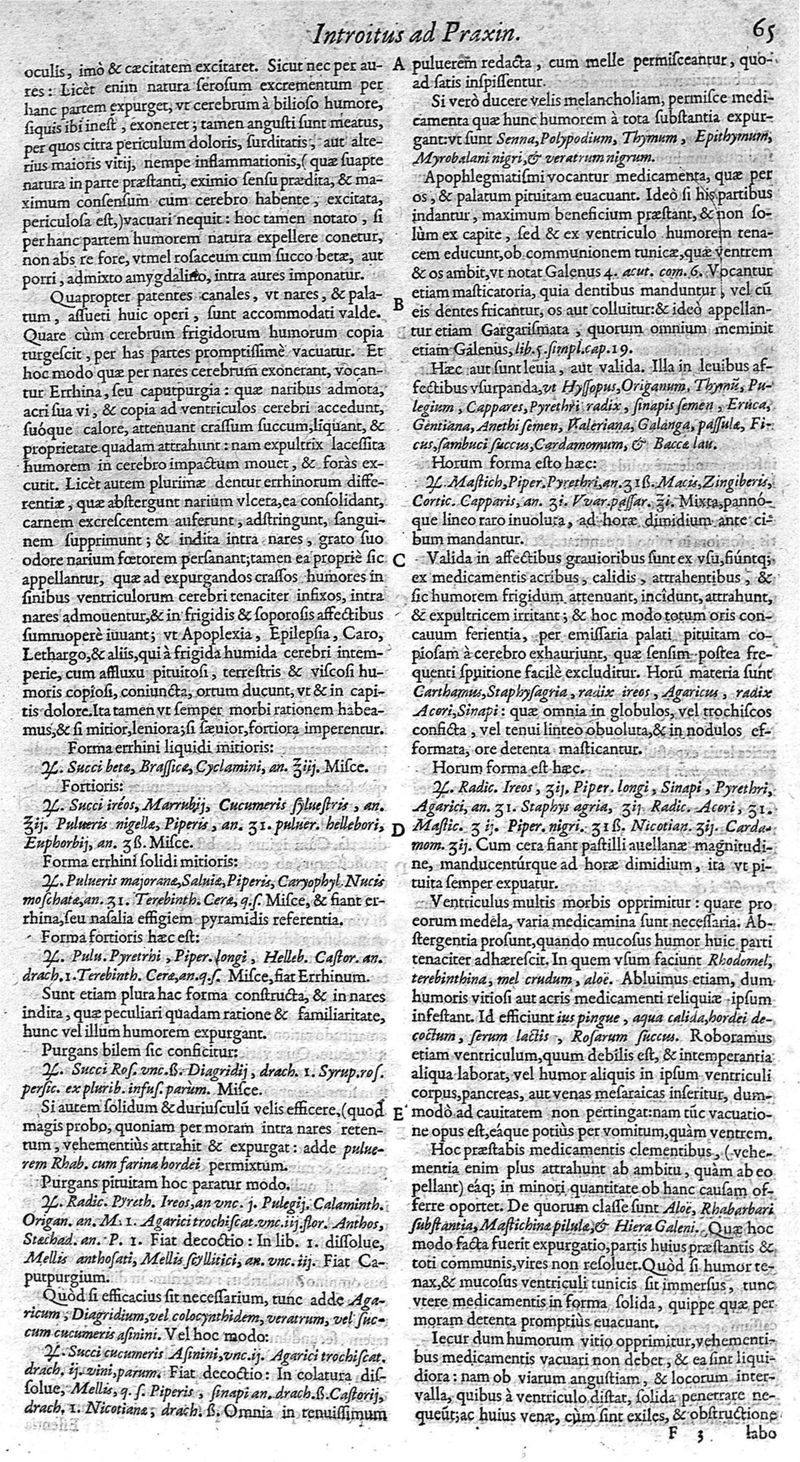 Introitus ad Praxin. 65
oculis, imò & cæcitatem excitaret. Sicut nec per au-
res: Licèt enim natura serosum excrementum per
hanc partem expurget, vt cerebrum à bilioso humore,
siquis ibi inest, exoneret; tamen angusti sunt meatus,
per quos citra periculum doloris, surditatis, aut alte-
rius maioris vitij, nempe inflammationis, (quæ suapte
natura in parte præstanti, eximio sensu prædita, & ma-
ximum consensum cum cerebro habente, excitata,
periculosa est,) vacuari nequit: hoc tamen notato, si
per hanc partem humorem natura expellere conetur,
non abs re fore, vt mel rosaceum cum succo betæ, aut
porri, admixto amygdalino, intra aures imponatur.
Quapropter patentes canales, vt nares, & pala-
tum, assueti huic operi, sunt accommodati valde.
Quare cùm cerebrum frigidorum humorum copia
turgescit, per has partes promptissimè vacuatur. Et
hoc modo quæ per nares cerebrum exonerant, vocan-
tur Errhina, seu caputpurgia: quæ naribus admota,
acri sua vi, & copia ad ventriculos cerebri accedunt,
suóque calore, attenuant crassum succum, liquant, &
proprietate quadam attrahunt: nam expultrix lacessita
humorem in cerebro impactum mouet, & foràs ex-
cutit. Licèt autem plurimæ dentur errhinorum diffe-
rentiæ, quæ abstergunt narium vlcera, ea consolidant,
carnem excrescentem auferunt, adstringunt, sangui-
nem supprimunt; & indita intra nares, grato suo
odore narium fœtorem persanant; tamen ea propriè sic
appellantur, quæ ad expurgandos crassos humores in
sinibus ventriculorum cerebri tenaciter infixos, intra
nares admouentur, & in frigidis & soporosis affectibus
summoperè iuuant; vt Apoplexia, Epilepsia, Caro,
Lethargo, & aliis, qui à frigida humida cerebri intem-
perie, cum affluxu pituitosi, terrestris & viscosi hu-
moris copiosi, coniuncta, ortum ducunt, vt & in capi-
tis dolore. Ita tamen vt semper morbi rationem habea-
mus, & si mitior, leniora; si sæuior, fortiora imperentur.
Forma errhini liquidi mitioris:
℞. Succi betæ, Brassicæ, Cyclamini, an. ℥iij. Misce.
Fortioris:
℞. Succi iréos, Marrubij, Cucumeris syluestris, an.
℥ij. Pulueris nigellæ, Piperis, an. ʒ1. puluer. hellebori,
Euphorbij, an. ʒß. Misce.
Forma errhini solidi mitioris:
℞. Pulueris majoranæ, Saluiæ, Piperis, Caryophyl. Nucis
moschatæ, an. ʒ1. Terebinth. Ceræ, q.s. Misce, & fiant er-
rhina, seu nasalia effigiem pyramidis referentia.
Forma fortioris hæc est:
℞. Pulu. Pyrethri, Piper. longi, Helleb. Castor. an.
drach. 1. Terebinth. Ceræ, an. q.s. Misce, fiat Errhinum.
Sunt etiam plura hac forma constructa, & in nares
indita, quæ peculiari quadam ratione & familiaritate,
hunc vel illum humorem expurgant.
Purgans bilem sic conficitur:
℞. Succi Ros. vnc. ß. Diagridij, drach. 1. Syrup. ros.
persic. ex plurib. infus. parum. Misce.
Si autem solidum & duriusculũ velis efficere, (quod
magis probo, quoniam per moram intra nares reten-
tum, vehementiùs attrahit & expurgat: adde pulue-
rem Rhab. cum farina hordei permixtum.
Purgans pituitam hoc paratur modo.
℞. Radic. Pyreth. Ireos, an vnc. j. Pulegij, Calaminth.
Origan. an. M. 1. Agarici trochiscat. vnc. iij. flor. Anthos,
Stæchad. an. P. 1. Fiat decoctio: In lib. 1. dissolue,
Mellis anthosati, Mellis scyllitici, an. vnc. iij. Fiat Ca-
putpurgium.
Quòd si efficacius sit necessarium, tunc adde Aga-
ricum, Diagridium, vel colocynthidem, veratrum, vel suc-
cum cucumeris asinini. Vel hoc modo:
℞. Succi cucumeris Asinini, vnc. ij. Agarici trochiscat.
drach. ij. vini, parum. Fiat decoctio: In colatura dis-
solue, Mellis, q. s. Piperis, sinapi an. drach. ß. Castorij,
drach. 1. Nicotianæ, drach. ß. Omnia in tenuissimum
A puluerem redacta, cum melle permisceantur, quo-
ad satis inspissentur.
Si verò ducere velis melancholiam, permisce medi-
camenta quæ hunc humorem à tota substantia expur-
gant: vt sunt Senna, Polypodium, Thymum, Epithymum,
Myrobalani nigri, & veratrum nigrum.
Apophlegmatismi vocantur medicamenta, quæ per
os, & palatum pituitam euacuant. Ideò si his partibus
indantur, maximum beneficium præstant, & non so-
lùm ex capite, sed & ex ventriculo humorem tena-
cem educunt, ob communionem tunicæ, quæ ventrem
& os ambit, vt notat Galenus 4. acut. com. 6. Vocantur
etiam masticatoria, quia dentibus manduntur, vel cũ
B eis dentes fricantur, os aut colluitur: & ideò appellan-
tur etiam Gargarismata, quorum omnium meminit
etiam Galenus, lib. 5. simpl. cap. 19.
Hæc aut sunt leuia, aut valida. Illa in leuibus af-
fectibus vsurpanda, vt Hyssopus, Origanum, Thymũ, Pu-
legium, Cappares, Pyrethri radix, sinapis semen, Eruca,
Gentiana, Anethi semen, Valeriana, Galanga, passulæ, Fi-
cus, sambuci succus, Cardamomum, & Baccæ lau.
Horum forma esto hæc:
℞. Mastich, Piper. Pyrethri, an. ʒ1ß. Macis, Zingiberis,
Cortic. Capparis, an. ʒi. Vvar. passar. ℥i. Mixta, pannó-
que lineo raro inuoluta, ad horæ dimidium ante ci-
bum mandantur.
C Valida in affectibus grauioribus sunt ex vsu, fiúntq;
ex medicamentis acribus, calidis, attrahentibus, &
sic humorem frigidum attenuant, incîdunt, attrahunt,
& expultricem irritant; & hoc modo totum oris con-
cauum ferientia, per emissaria palati pituitam co-
piosam à cerebro exhauriunt, quæ sensim postea fre-
quenti spuitione facilè excluditur. Horũ materia sunt
Carthamus, Staphysagria, radix ireos, Agaricus, radix
Acori, Sinapi: quæ omnia in globulos, vel trochiscos
conficta, vel tenui linteo obuoluta, & in nodulos ef-
formata, ore detenta masticantur.
Horum forma est hæc.
℞. Radic. Ireos, ʒij. Piper. longi, Sinapi, Pyrethri,
Agarici, an. ʒ1. Staphys agria, ʒij Radic. Acori, ʒ1.
D Mastic. ʒ ij. Piper. nigri. ʒ1ß. Nicotian. ʒij. Carda-
mom. ʒij. Cum cera fiant pastilli auellanæ magnitudi-
ne, manducentúrque ad horæ dimidium, ita vt pi-
tuita semper expuatur.
Ventriculus multis morbis opprimitur: quare pro
eorum medela, varia medicamina sunt necessaria. Ab-
stergentia prosunt, quando mucosus humor huic parti
tenaciter adhærescit. In quem vsum faciunt Rhodomel,
terebinthina, mel crudum, aloë. Abluimus etiam, dum
humoris vitiosi aut acris medicamenti reliquiæ ipsum
infestant. Id efficiunt ius pingue, aqua calida, hordei de-
coctum, serum lactis, Rosarum succus. Roboramus
etiam ventriculum, quum debilis est, & intemperantia
aliqua laborat, vel humor aliquis in ipsum ventriculi
corpus, pancreas, aut venas mesaraicas inseritur, dum-
E modò ad cauitatem non pertingat: nam tũc vacuatio-
ne opus est, eáque potiùs per vomitum, quàm ventrem.
Hoc præstabis medicamentis clementibus, (vehe-
mentia enim plus attrahunt ab ambitu, quàm ab eo
pellant) eáq; in minori quantitate ob hanc causam of-
ferre oportet. De quorum classe sunt Aloë, Rhabarbari
substantia, Mastichinæ pilulæ, & Hiera Galeni. Quæ hoc
modo facta fuerit expurgatio, partis huius præstantis &
toti communis, vires non resoluet. Quòd si humor te-
nax, & mucosus ventriculi tunicis sit immersus, tunc
vtere medicamentis in forma solida, quippe quæ per
moram detenta promptiùs euacuant.
Iecur dum humorum vitio opprimitur, vehementi-
bus medicamentis vacuari non debet, & ea sint liqui-
diora: nam ob viarum angustiam, & locorum inter-
valla, quibus à ventriculo distat, solida penetrare ne-
queũt; ac huius venæ, cùm sint exiles, & obstructione
F 3 labo